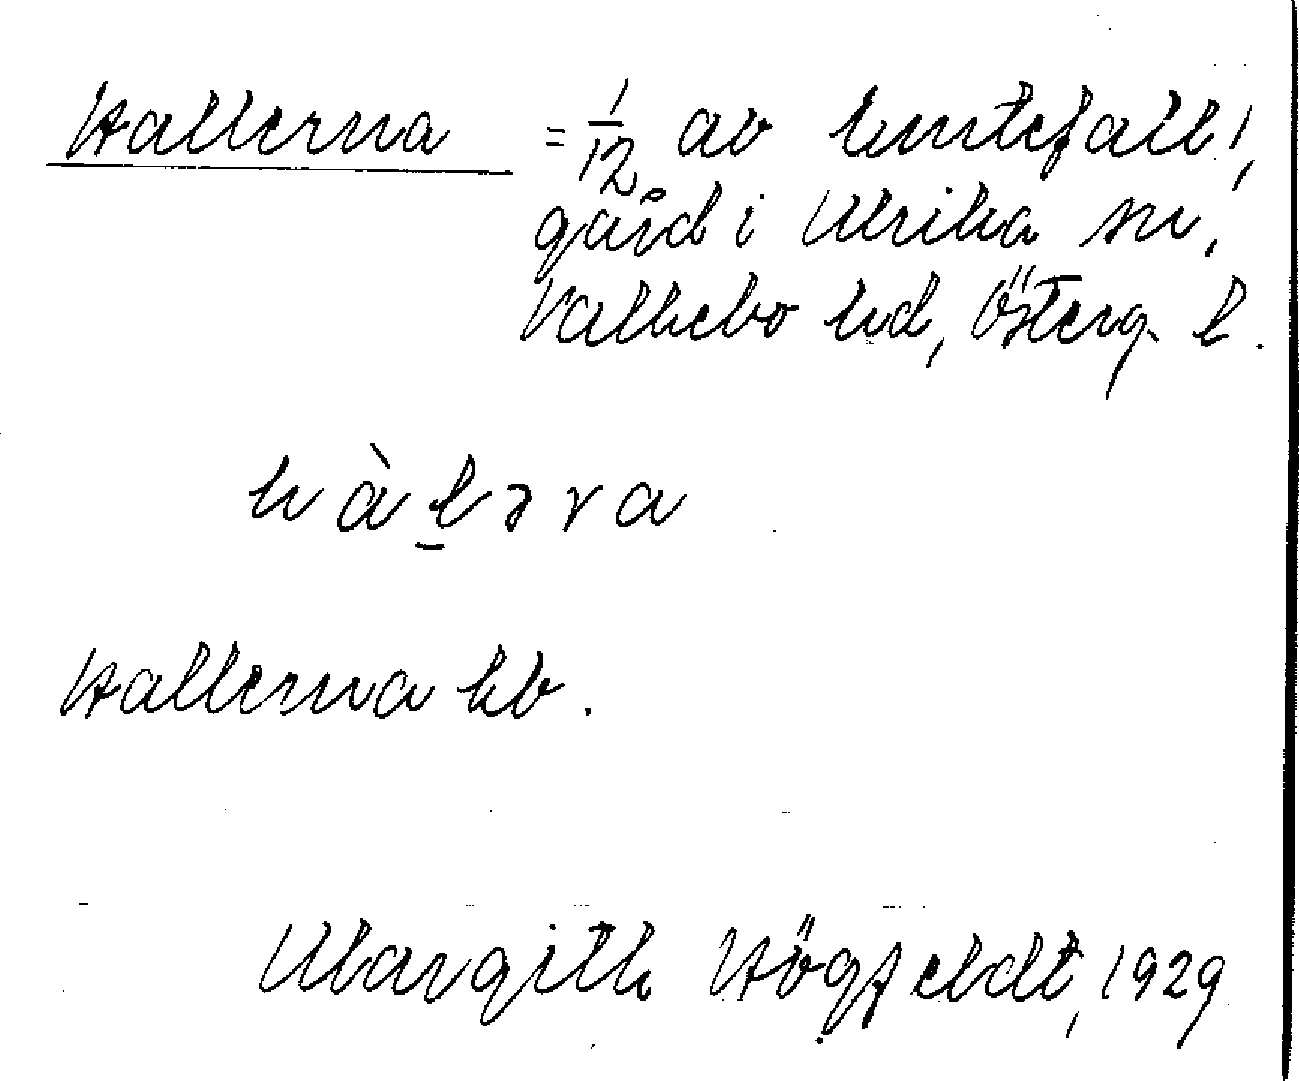 Hallerna = 1/12 av Lintefall!,
gård i Ulrika sn,
Valkebo hd, Österg. l.
hàl̲əra
Hallerna kb.
Margith Högfeldt, 1929